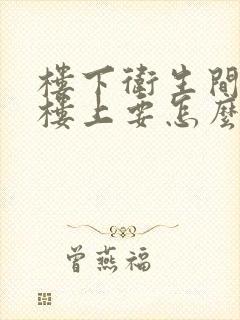 樓下衛生間
樓上要怎麼
曾燕福